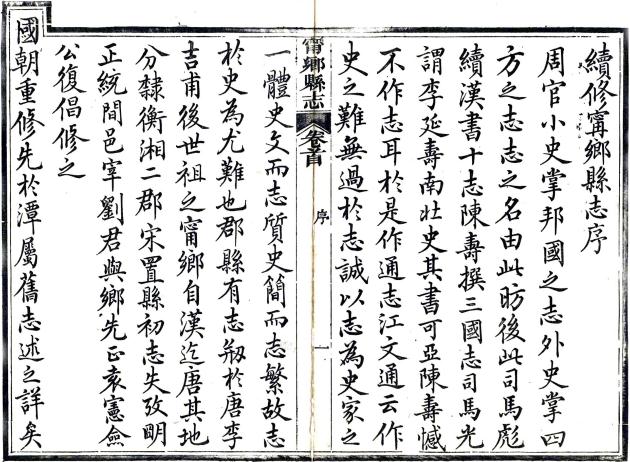 續修甯鄉縣志序
周官小史掌邦國之志外史掌四
方之志志之名由此昉後此司馬彪
續漢書十志陳壽撰三國志司馬光
謂李延壽南北史其書可亞陳壽憾
不作志耳於是作通志江文通云作
史之難無過於志誠以志為史家之
甯鄉縣志
卷首
序
一
一體史文而志質史簡而志繁故志
於史為尤難也郡縣有志剏於唐李
吉甫後世祖之甯鄉自漢迄唐其地
分隸衡湘二郡宋置縣初志失攷明
正統間邑宰劉君與鄉先正袁憲僉
公復倡修之
國朝重修先於潭屬舊志述之詳矣